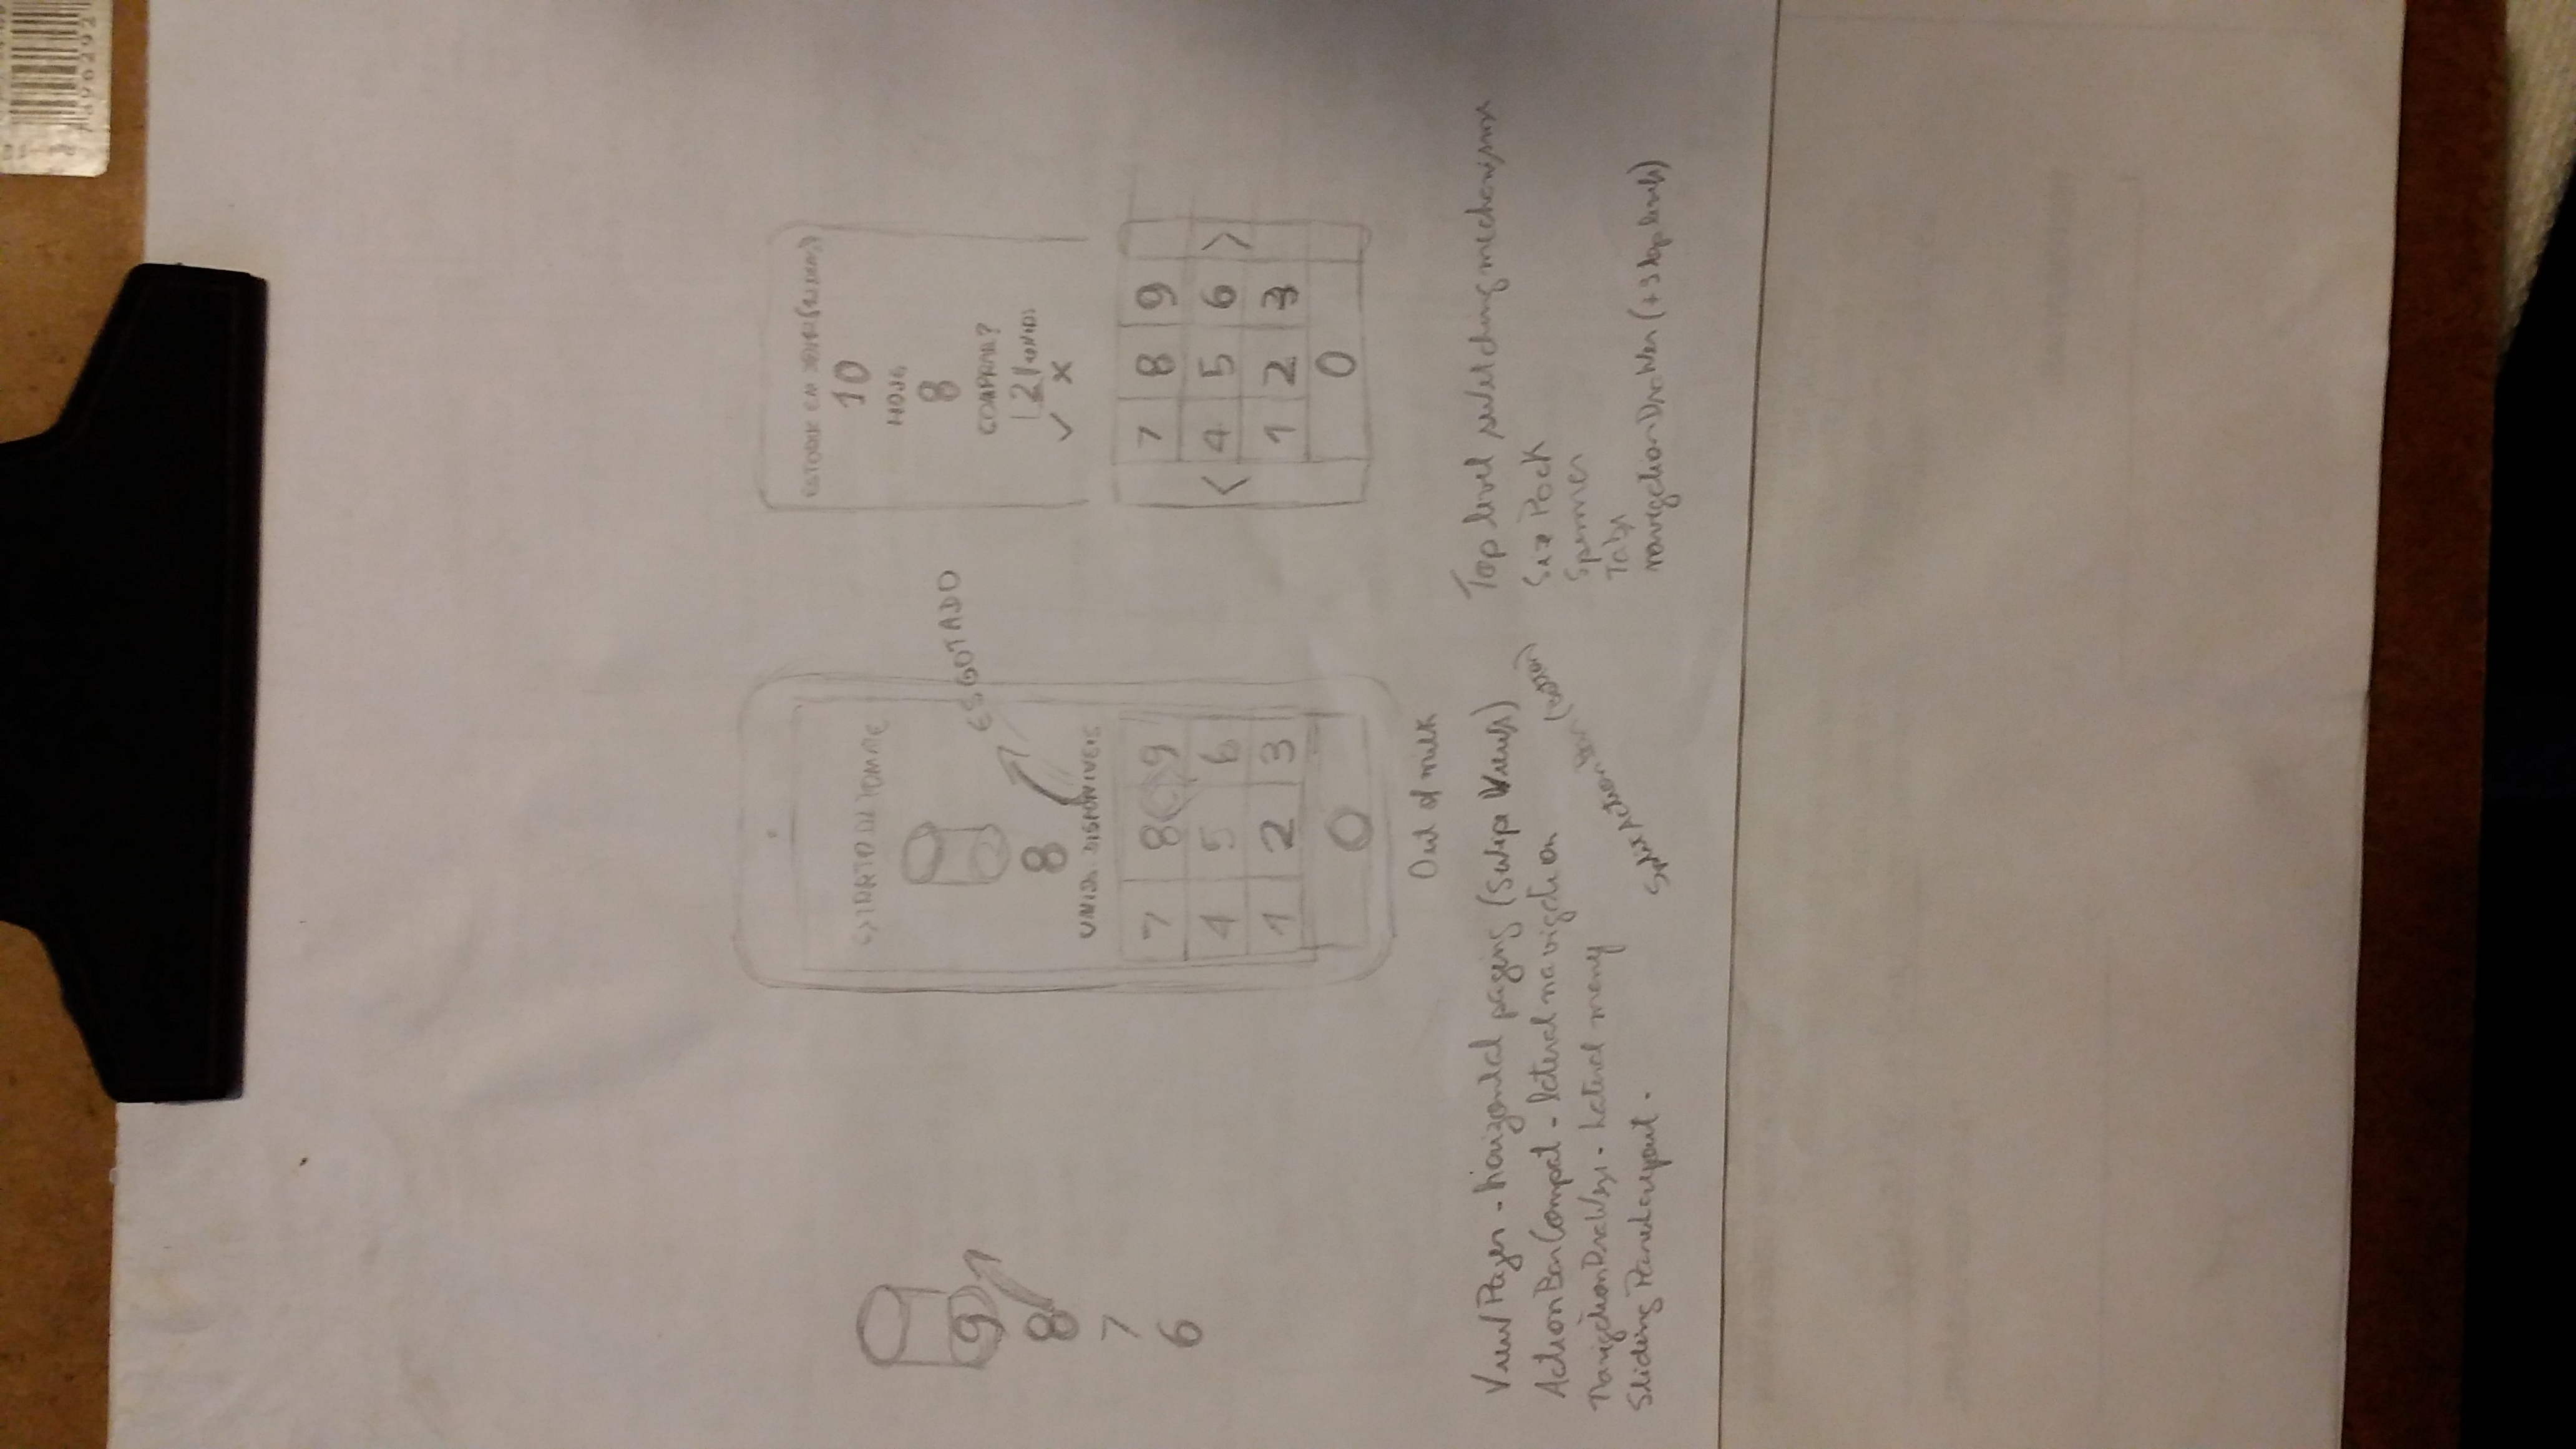 7896292
9
8
7
6
EXTRATO DE TOMATE
8
UNIDS. DISPONÍVEIS
ESGOTADO
7 8 9
4 5 6
1 2 3
0
Out of milk
ESTOQUE EM
10
HOJE
8
COMPRAR?
2 UNIDS
✓ ×
7 8 9
< 4 5 6 >
1 2 3
0
ViewPager - horizontal paging (Swipe Views)
ActionBarCompat - lateral navigation
NavigationDrawer - Lateral
SlidingPaneLayout.
SplitActionBar (Bottom)
Top level switching mechanisms
Spinner
Tabs
navigationDrawer (+3 top levels)